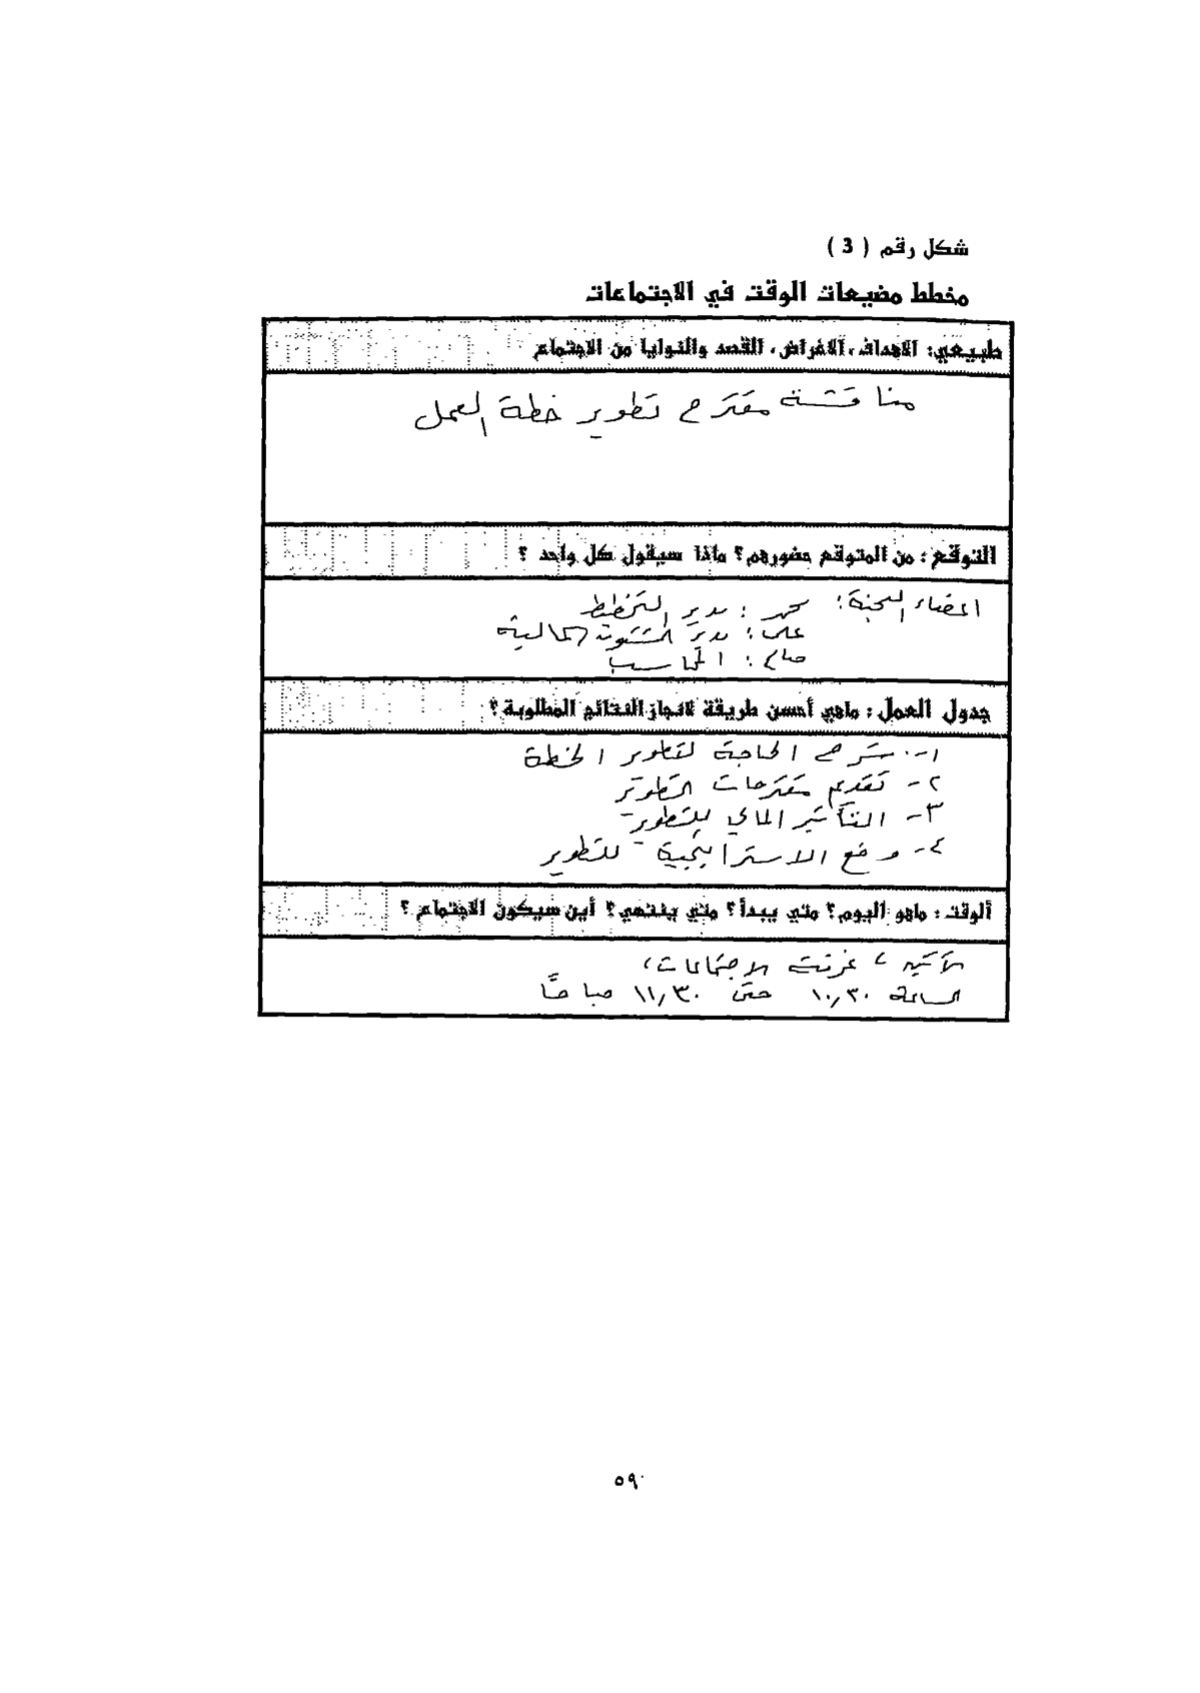 شكل رقم ( 3 )
مخطط مضيعات الوقت في الاجتماعات
طبيعي: الاهداف، الاغراض، القصد والنوايا من الاجتماع
مناقشة مقترح تطوير خطة العمل
التوقع : من المتوقع حضورهم؟ ماذا سيقول كل واحد ؟
اعضاء اللجنة: محمد : مدير التخطيط
علي : مدير الشئون المالية
صالح : المحاسب
جدول العمل : ماهي أحسن طريقة لانجاز النتائج المطلوبة ؟
١- شرح الحاجة لتطوير الخطة
٢- تقديم مقترحات التطوير
٣- التأثير المالي للتطوير
٤- وضع الاستراتيجية للتطوير
ألوقت : ماهو اليوم؟ متي يبدأ؟ متي ينتهي؟ أين سيكون الاجتماع ؟
غرفة الاجتماعات،
الساعة ١٠,٣٠ حتى ١١,٣٠ صباحًا
٥٩